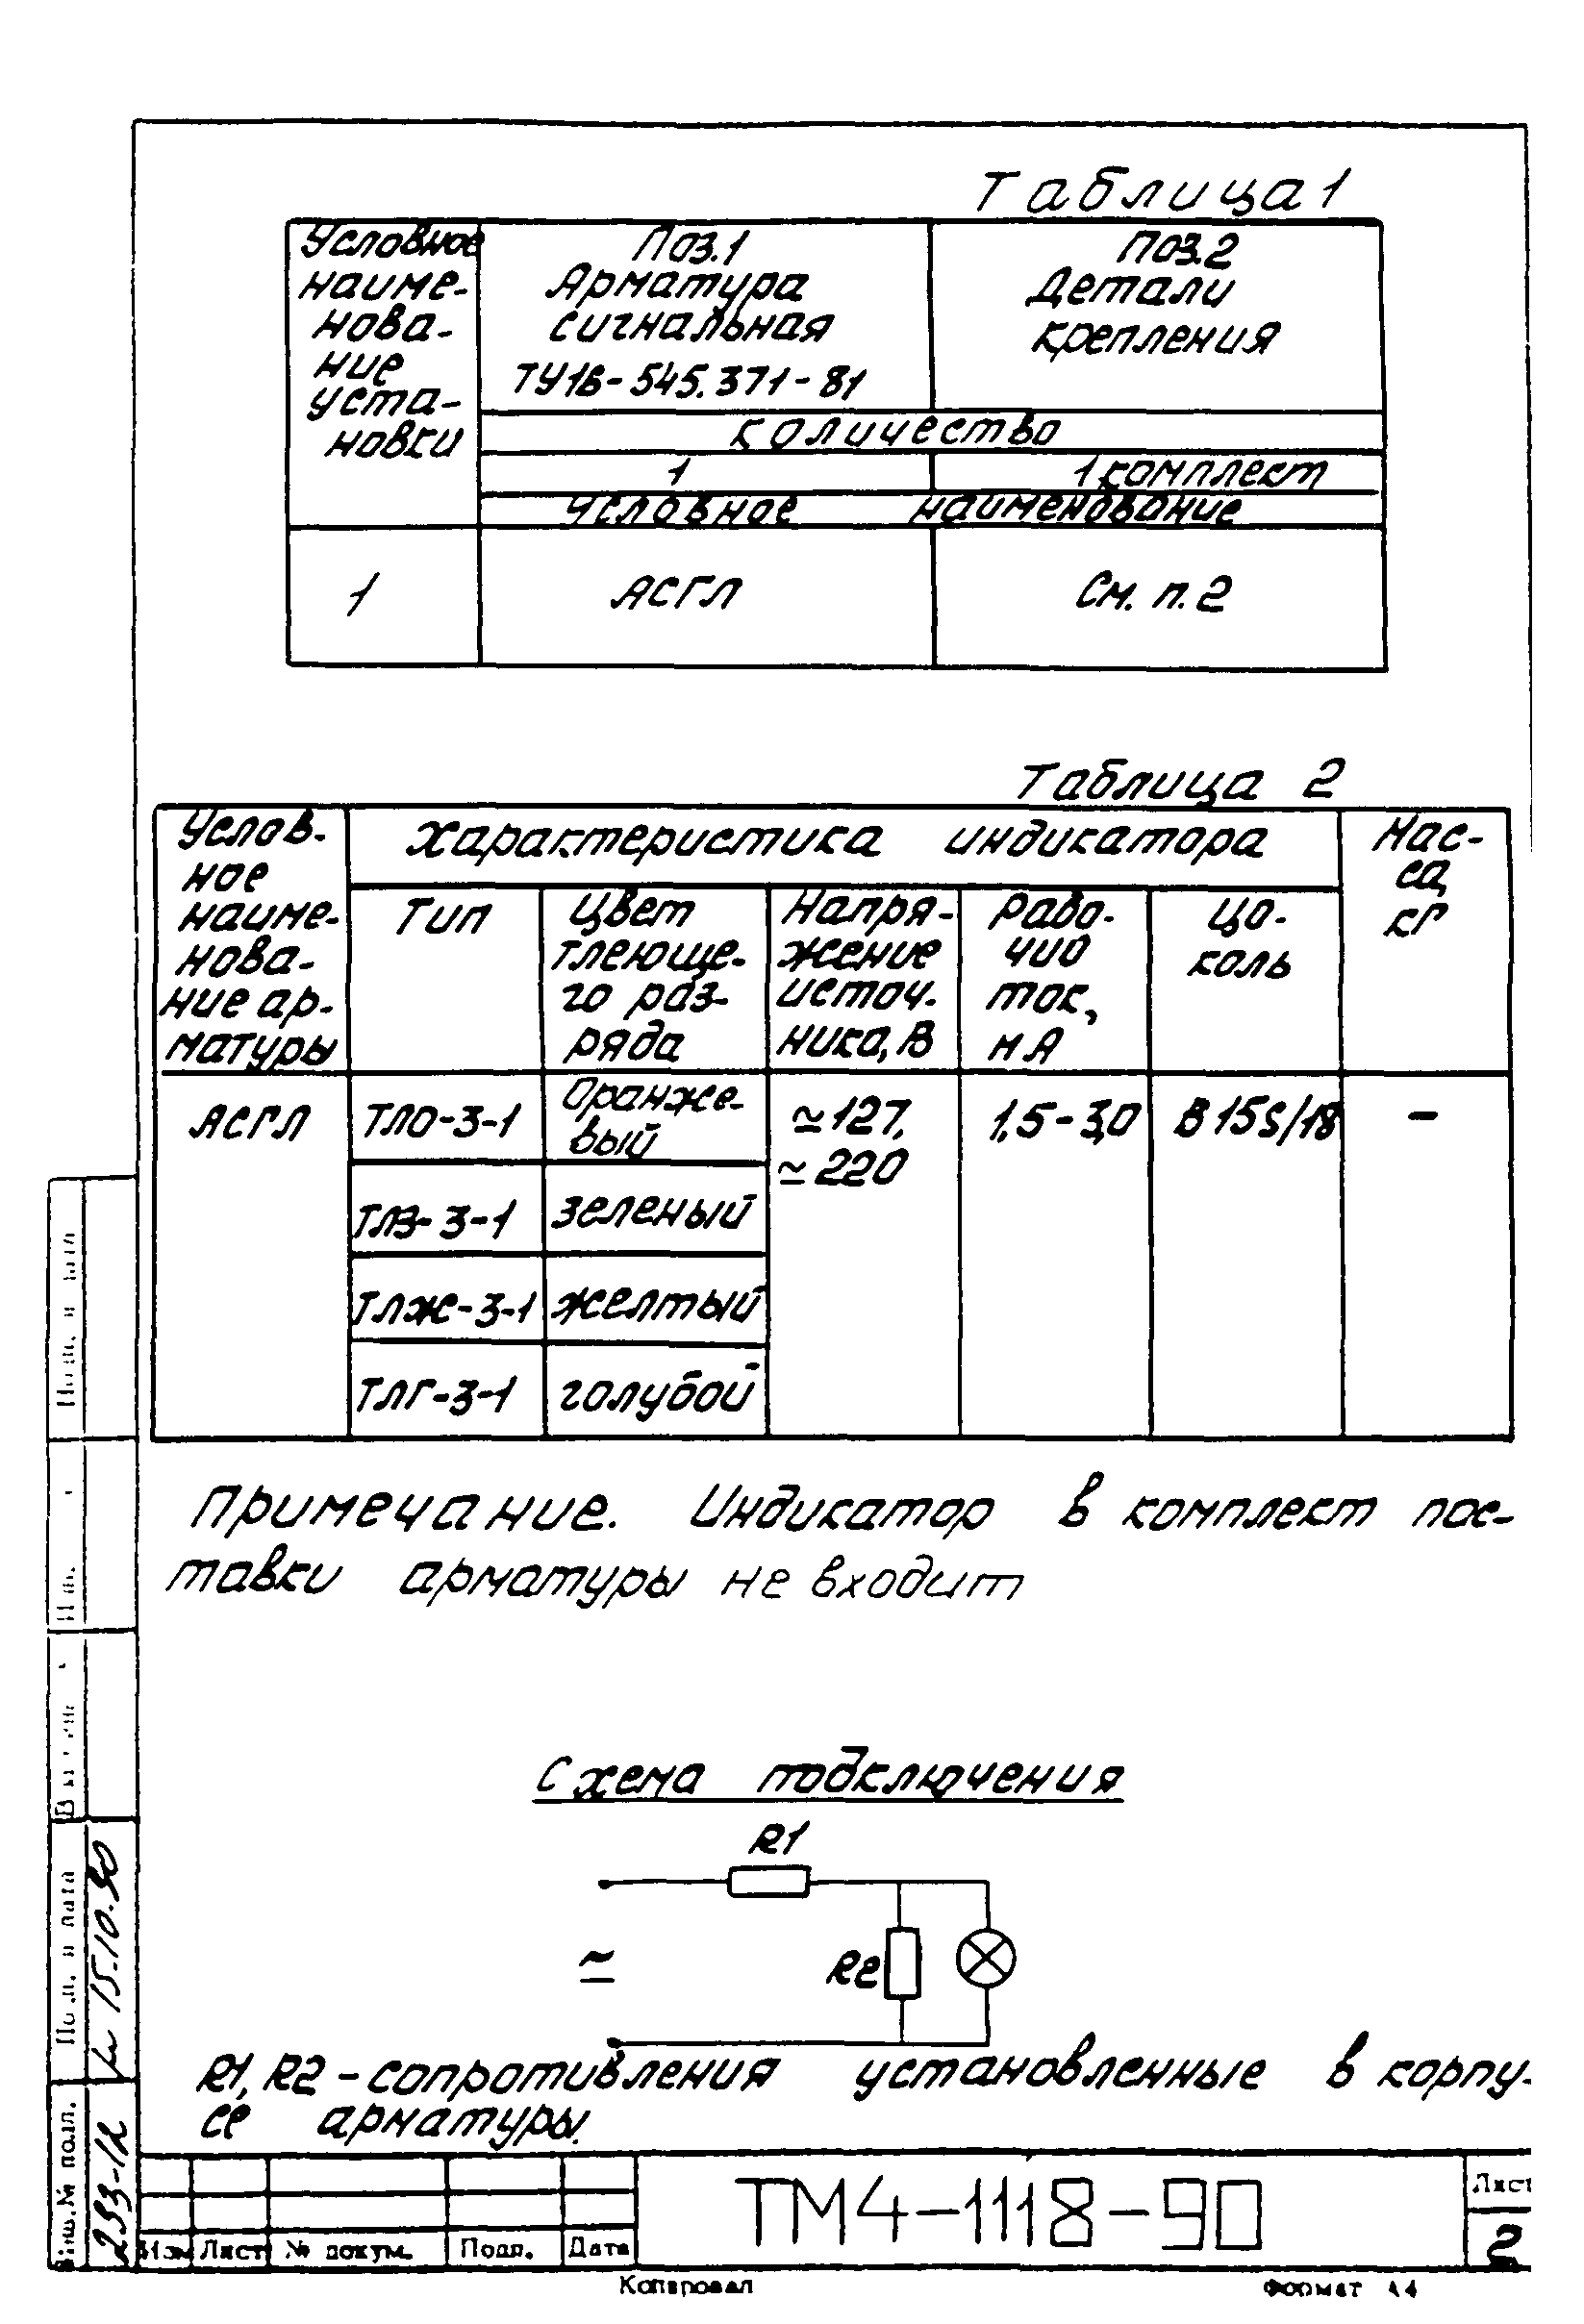 Таблица 1
Условное
наиме-
нова-
ние
уста-
новки
Поз.1
Арматура
сигнальная
ТУ16-545.371-81
Поз.2
Детали
крепления
количество
1
1 комплект
Условное наименование
1
АСГЛ
См. п. 2
Таблица 2
Услов-
ное
наиме-
нова-
ние ар-
матуры
Характеристика индикатора
Мас-
са,
кг
Тип
Цвет
тлеюще-
го раз-
ряда
Напря-
жение
источ-
ника, В
Рабо-
чий
ток,
мА
Цо-
коль
АСГЛ
ТЛО-3-1
Оранже-
вый
≃127,
≃220
1,5-3,0
В15s/18
–
ТЛЗ-3-1
зеленый
ТЛЖ-3-1
желтый
ТЛГ-3-1
голубой
Примечание. Индикатор в комплект пос-
тавки арматуры не входит
Схема подключения
R1
≃
R2
R1, R2 - сопротивления установленные в корпу-
се арматуры.
Подп. и дата
15.10.90
Инв. № подл.
Изм Лист № докум. Подп. Дата
ТМ4-1118-90
Лист
2
Копировал
Формат А4